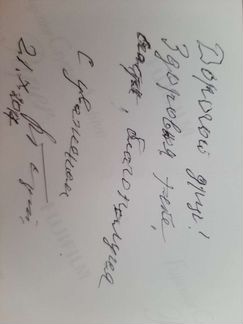 Дорогой друг!
Здоровья тебе,
счастья, благополучия
С уважением
21 X